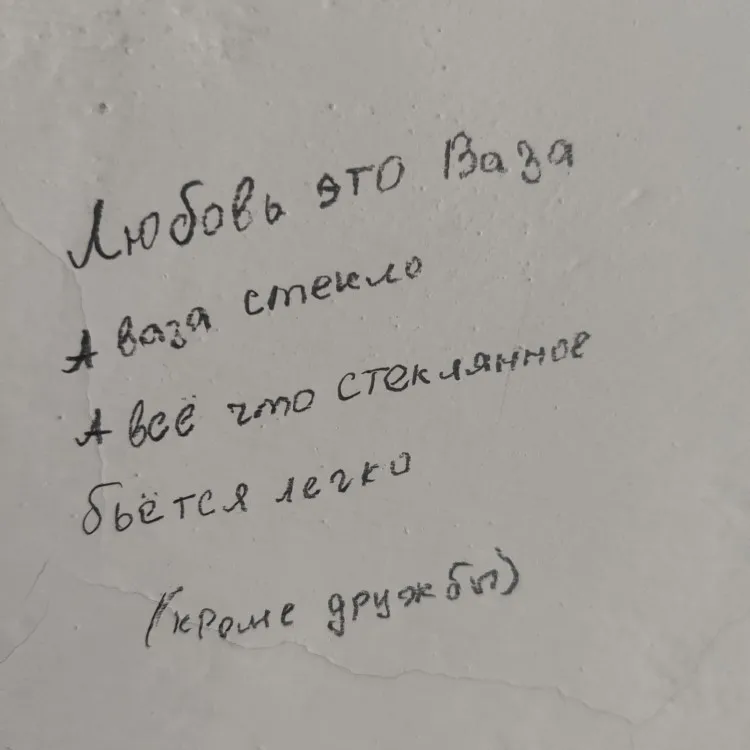 Любовь это Ваза
А ваза стекло
А всё что стеклянное
бьётся легко
(кроме дружбы)